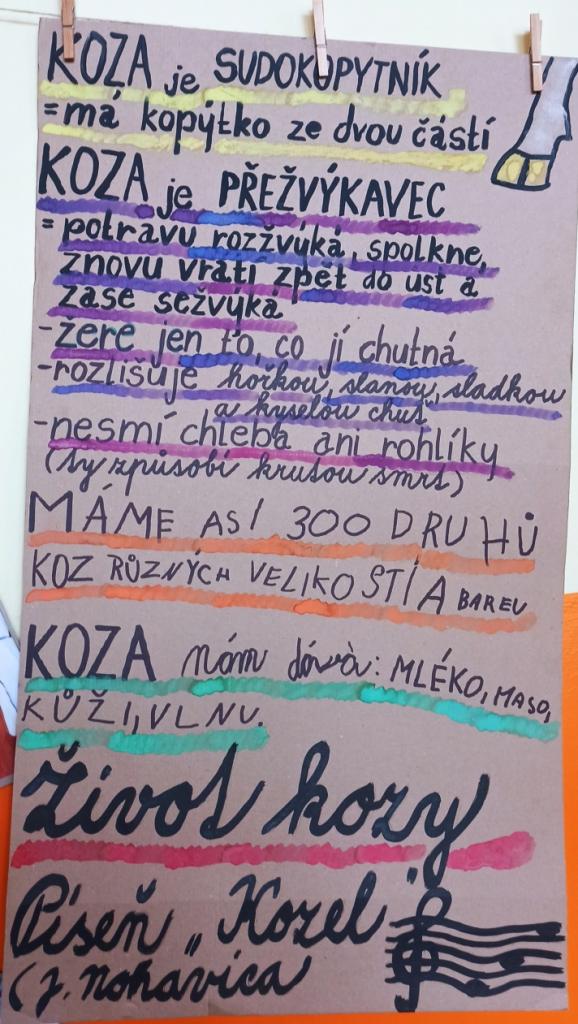 KOZA je SUDOKOPYTNÍK
= má kopýtko ze dvou částí
KOZA je PŘEŽVÝKAVEC
= potravu rozžvýká, spolkne,
znovu vrátí zpět do úst a
zase sežvýká
- žere jen to, co jí chutná
- rozlišuje hořkou, slanou, sladkou
a kyselou chuť
- nesmí chleba ani rohlíky
(ty způsobí krutou smrt)
MÁME ASI 300 DRUHŮ
KOZ RŮZNÝCH VELIKOSTÍ A BAREV
KOZA nám dává: MLÉKO, MASO,
KŮŽI, VLNU.
Život kozy
Píseň „Kozel"
(J. Nohavica